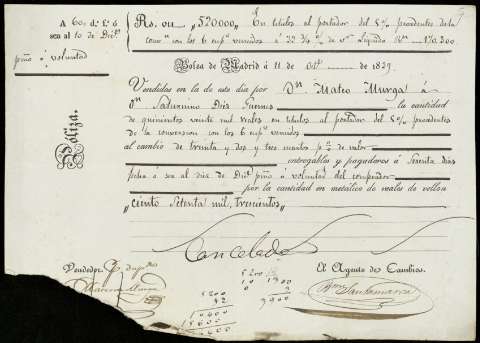 A 60. d.s f.ó
sea al 10 de Dic.e
piño á voluntad
Póliza.
Rs. vn. „520000„ En títulos al portador del 5 p% procedentes de la
conv.n con los 6 cup.s vencidos á 32 3/4 p% de v.r Líquido Rs.n 170.300
Bolsa de Madrid á 11 de Oct.e de 1839.
Vendidos en la de este dia por D.n Mateo Murga á
D.n Saturnino Diez Guemes la cantidad
de quinientos veinte mil reales en títulos al portador del 5 p% procedentes
de la conversion con los 6 cup.s vencidos
al cambio de treinta y dos y tres cuartos p% de valor
entregables y pagaderos á Sesenta dias
fecha ó sea al diez de Dic.e piño á voluntad del comprador
por la cantidad en metálico de reales de vellon
„ciento Setenta mil, trecientos„
Cancelada
Vendedor
Mateo Murga
El Agente de Cambios.
Santamarca
5200
10
0
5200
32
10400
15600